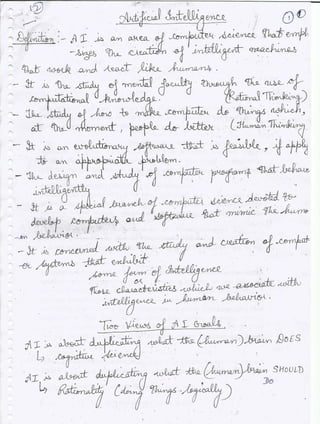 Artificial Intelligence
Definition :- AI is an area of computer science that emph
-sizes the creation of intelligent machines
that work and react like humans.
- It is the study of mental faculty through the use of
computational knowledge. (Rational Thinking)
- The study of how to make computers do things which,
at the moment, people do better. (Human Thinking
- It is an evolutionary software that is feasible, if apply
to an appropriate problem.
- The design and study of computer programs that behave
intelligently
- It is a special branch of computer science devoted to
develop computers and software that mimic the huma
-n behavior.
- It is concerned with the study and creation of comput
-er systems that exhibit
some form of Intelligence
or
those characteristics which we associate with
intelligence in human behavior.
Two Views of AI Goals.
AI is about duplicating what the (human) brain DOES
↳ cognitive science
AI is about duplicating what the (human) brain SHOULD
DO
↳ Rationality (doing things logically)